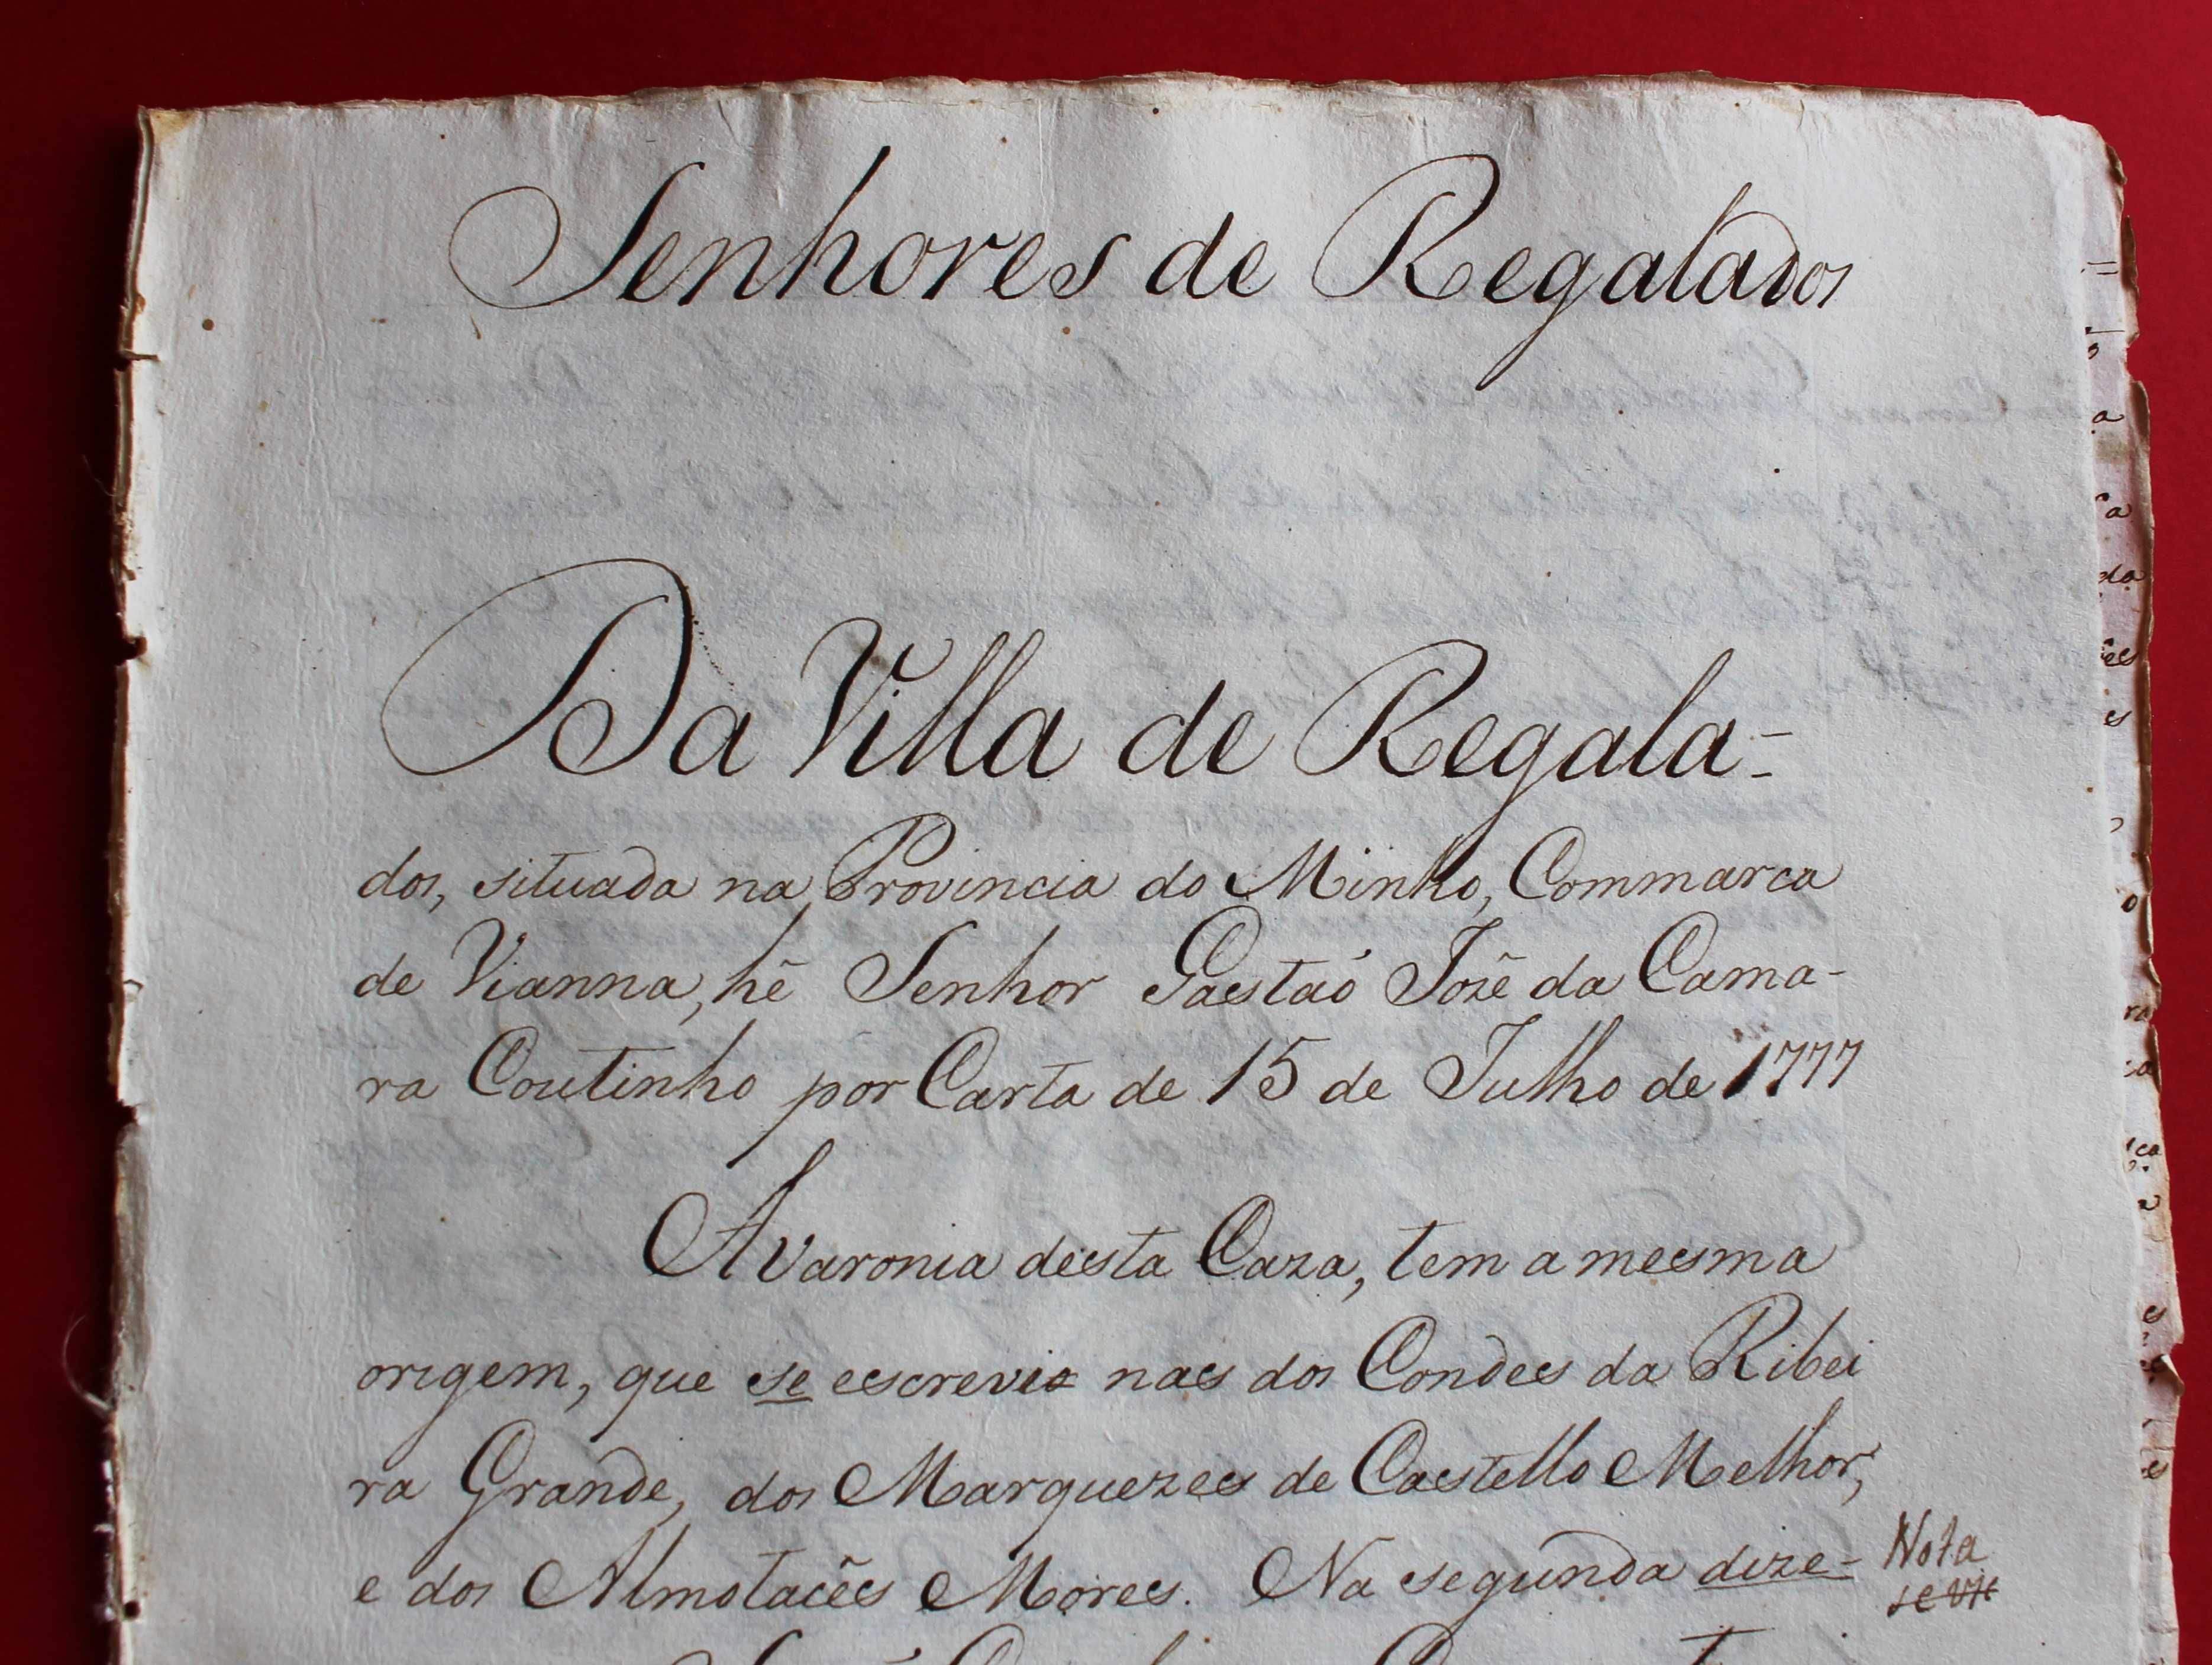 Senhores de Regalados
Da Villa de Regala=
dos, situada na Provincia do Minho, Commarca
de Vianna, hê Senhor Gastaõ Jozê da Cama-
ra Coutinho por Carta de 15 de Julho de 1777
A varonia desta Caza, tem a mesma
origem, que se escrevio nas dos Condes da Ribei
ra Grande, dos Marquezes de Castello Melhor,
e dos Almotacẽs Mores. Na segunda dize= Nota